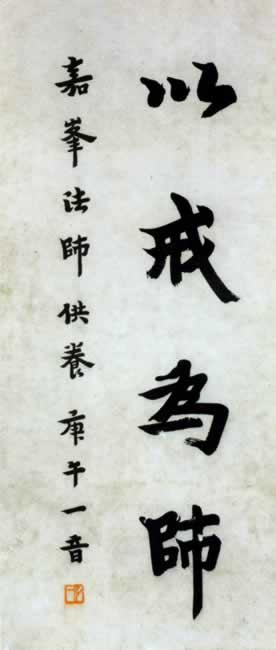 以戒為師
嘉峯法師供養 庚午一音